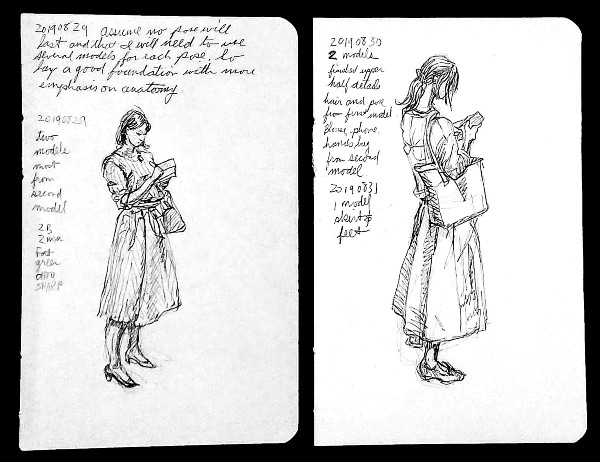 20190829 assume no pose will
last and that I will need to use
several models for each pose. So
lay a good foundation with more
emphasis on anatomy
20190829
two
models
most
from
second
model
2B
2mm
Fat
green
OHTO
SHARP
20190830
2 models
finished upper
half details
hair and pose
from first model
Blouse, phone,
hands bag
from second
model
20190831
1 model
skirt &
feet